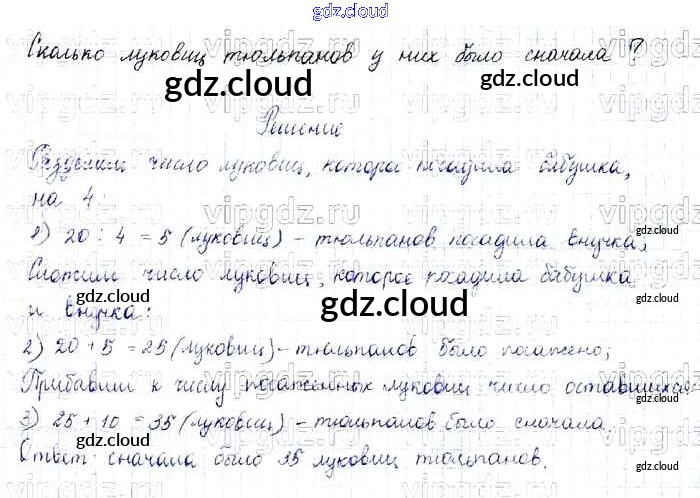 gdz.cloud
Сколько луковиц тюльпанов у них было сначала?
gdz.cloud gdz.cloud
Решение
Разделим число луковиц, которое посадила бабушка,
на 4:
1) 20 : 4 = 5 (луковиц) – тюльпанов посадила внучка;
gdz.cloud
Сложим число луковиц, которое посадила бабушка
gdz.cloud gdz.cloud gdz.cloud
и внучка:
2) 20 + 5 = 25 (луковиц) – тюльпанов было посажено;
Прибавим к числу посаженных луковиц число оставшихся:
3) 25 + 10 = 35 (луковиц) – тюльпанов было сначала.
gdz.cloud gdz.cloud
Ответ: сначала было 35 луковиц тюльпанов.
gdz.cloud